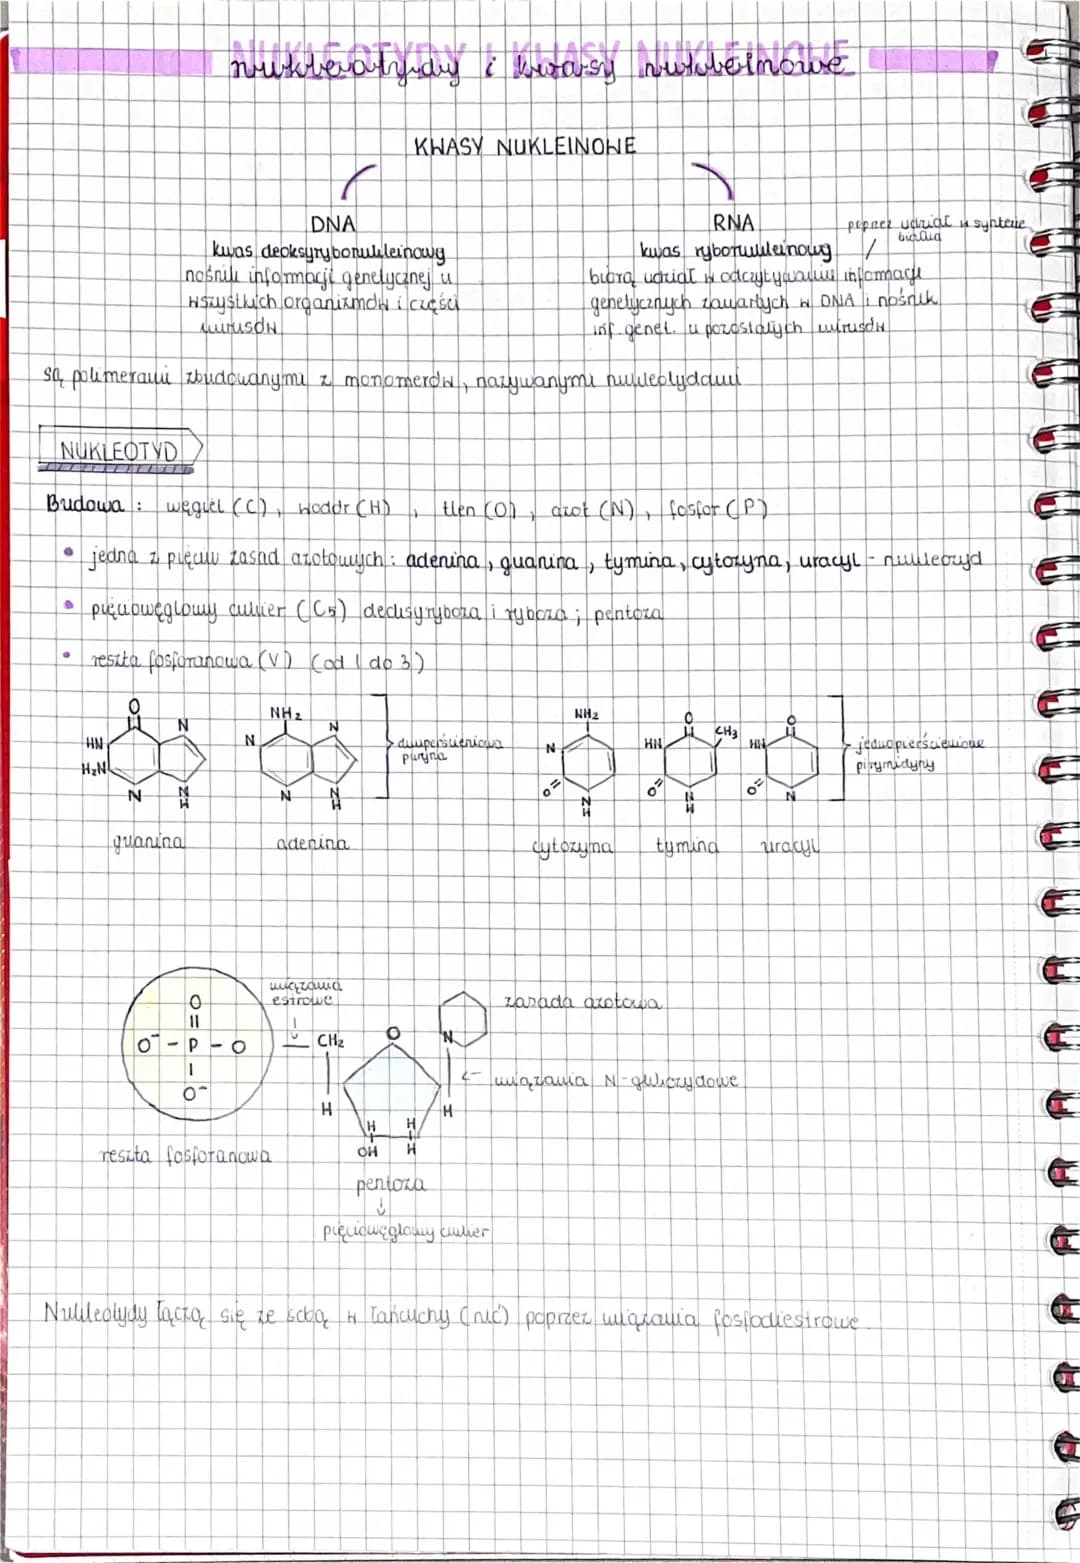 NUKLEOTYDY I KWASY NUKLEINOWE
nukleotydy i kwasy nukleinowe
KWASY NUKLEINOWE
DNA
kwas deoksyrybonukleinowy
nośnik informacji genetycznej u
wszystkich organizmów i części
wirusów
RNA
poprzez udział w syntezie
białka
kwas rybonukleinowy
biorą udział w odczytywaniu informacji
genetycznych zawartych w DNA i nośnik
inf. genet. u pozostałych wirusów
są polimerami zbudowanymi z monomerów, nazywanymi nukleotydami
NUKLEOTYD
Budowa : węgiel (C), wodór (H), tlen (O), azot (N), fosfor (P)
• jedna z pięciu zasad azotowych : adenina, guanina, tymina, cytozyna, uracyl - nukleozyd
• pięciowęglowy cukier (C5) deoksyryboza i ryboza ; pentoza
• reszta fosforanowa (V) (od 1 do 3)
O N HN H2N N N H
guanina
NH2 N N N N H
adenina
dwupierścieniowa
puryna
NH2 N O N H
cytozyna
O CH3 HN O N H
tymina
O HN O N
uracyl
jednopierścieniowe
pirymidyny
O
||
O⁻ - P - O
|
O⁻
reszta fosforanowa
wiązania
estrowe
CH2
H
O
H H
OH H
pentoza
↓
pięciowęglowy cukier
N
H
zasada azotowa
← wiązania N-glikozydowe
Nukleotydy łączą się ze sobą w łańcuchy (nić) poprzez wiązania fosfodiestrowe.